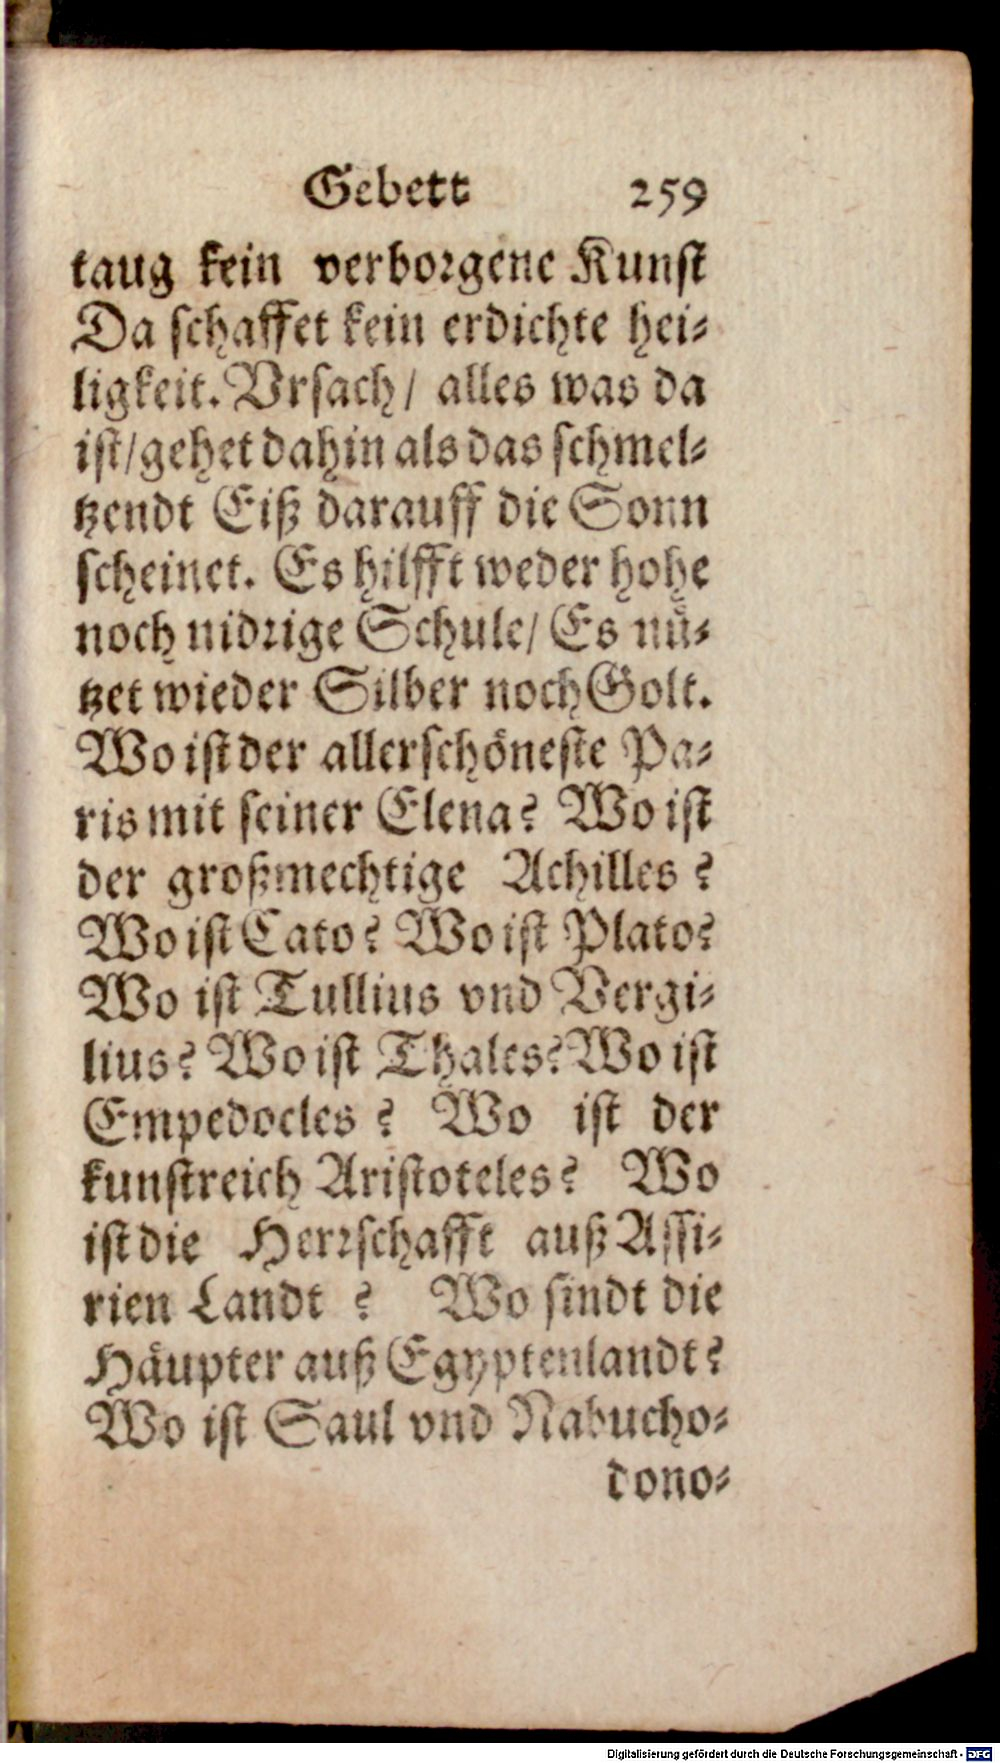 Gebett 259
taug kein verborgene Kunst
Da schaffet kein erdichte hei-
ligkeit. Vrsach/ alles was da
ist/gehet dahin als das schmel-
tzendt Eiß darauff die Sonn
scheinet. Es hilfft weder hohe
noch nidrige Schule/ Es nü-
tzet wieder Silber noch Golt.
Wo ist der allerschöneste Pa-
ris mit seiner Elena? Wo ist
der großmechtige Achilles?
Wo ist Cato? Wo ist Plato?
Wo ist Tullius vnd Vergi-
lius? Wo ist Thales? Wo ist
Empedocles? Wo ist der
kunstreich Aristoteles? Wo
ist die Herrschafft auß Assi-
rien Landt? Wo sindt die
Häupter auß Egyptenlandt?
Wo ist Saul vnd Nabucho-
dono-
Digitalisierung gefördert durch die Deutsche Forschungsgemeinschaft - DFG